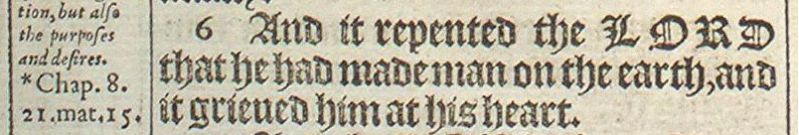 tion, but alſo
the purpoſes
and deſires.
*Chap. 8.
21.mat.15.
6 And it repented the LORD
that he had made man on the earth, and
it grieued him at his heart.